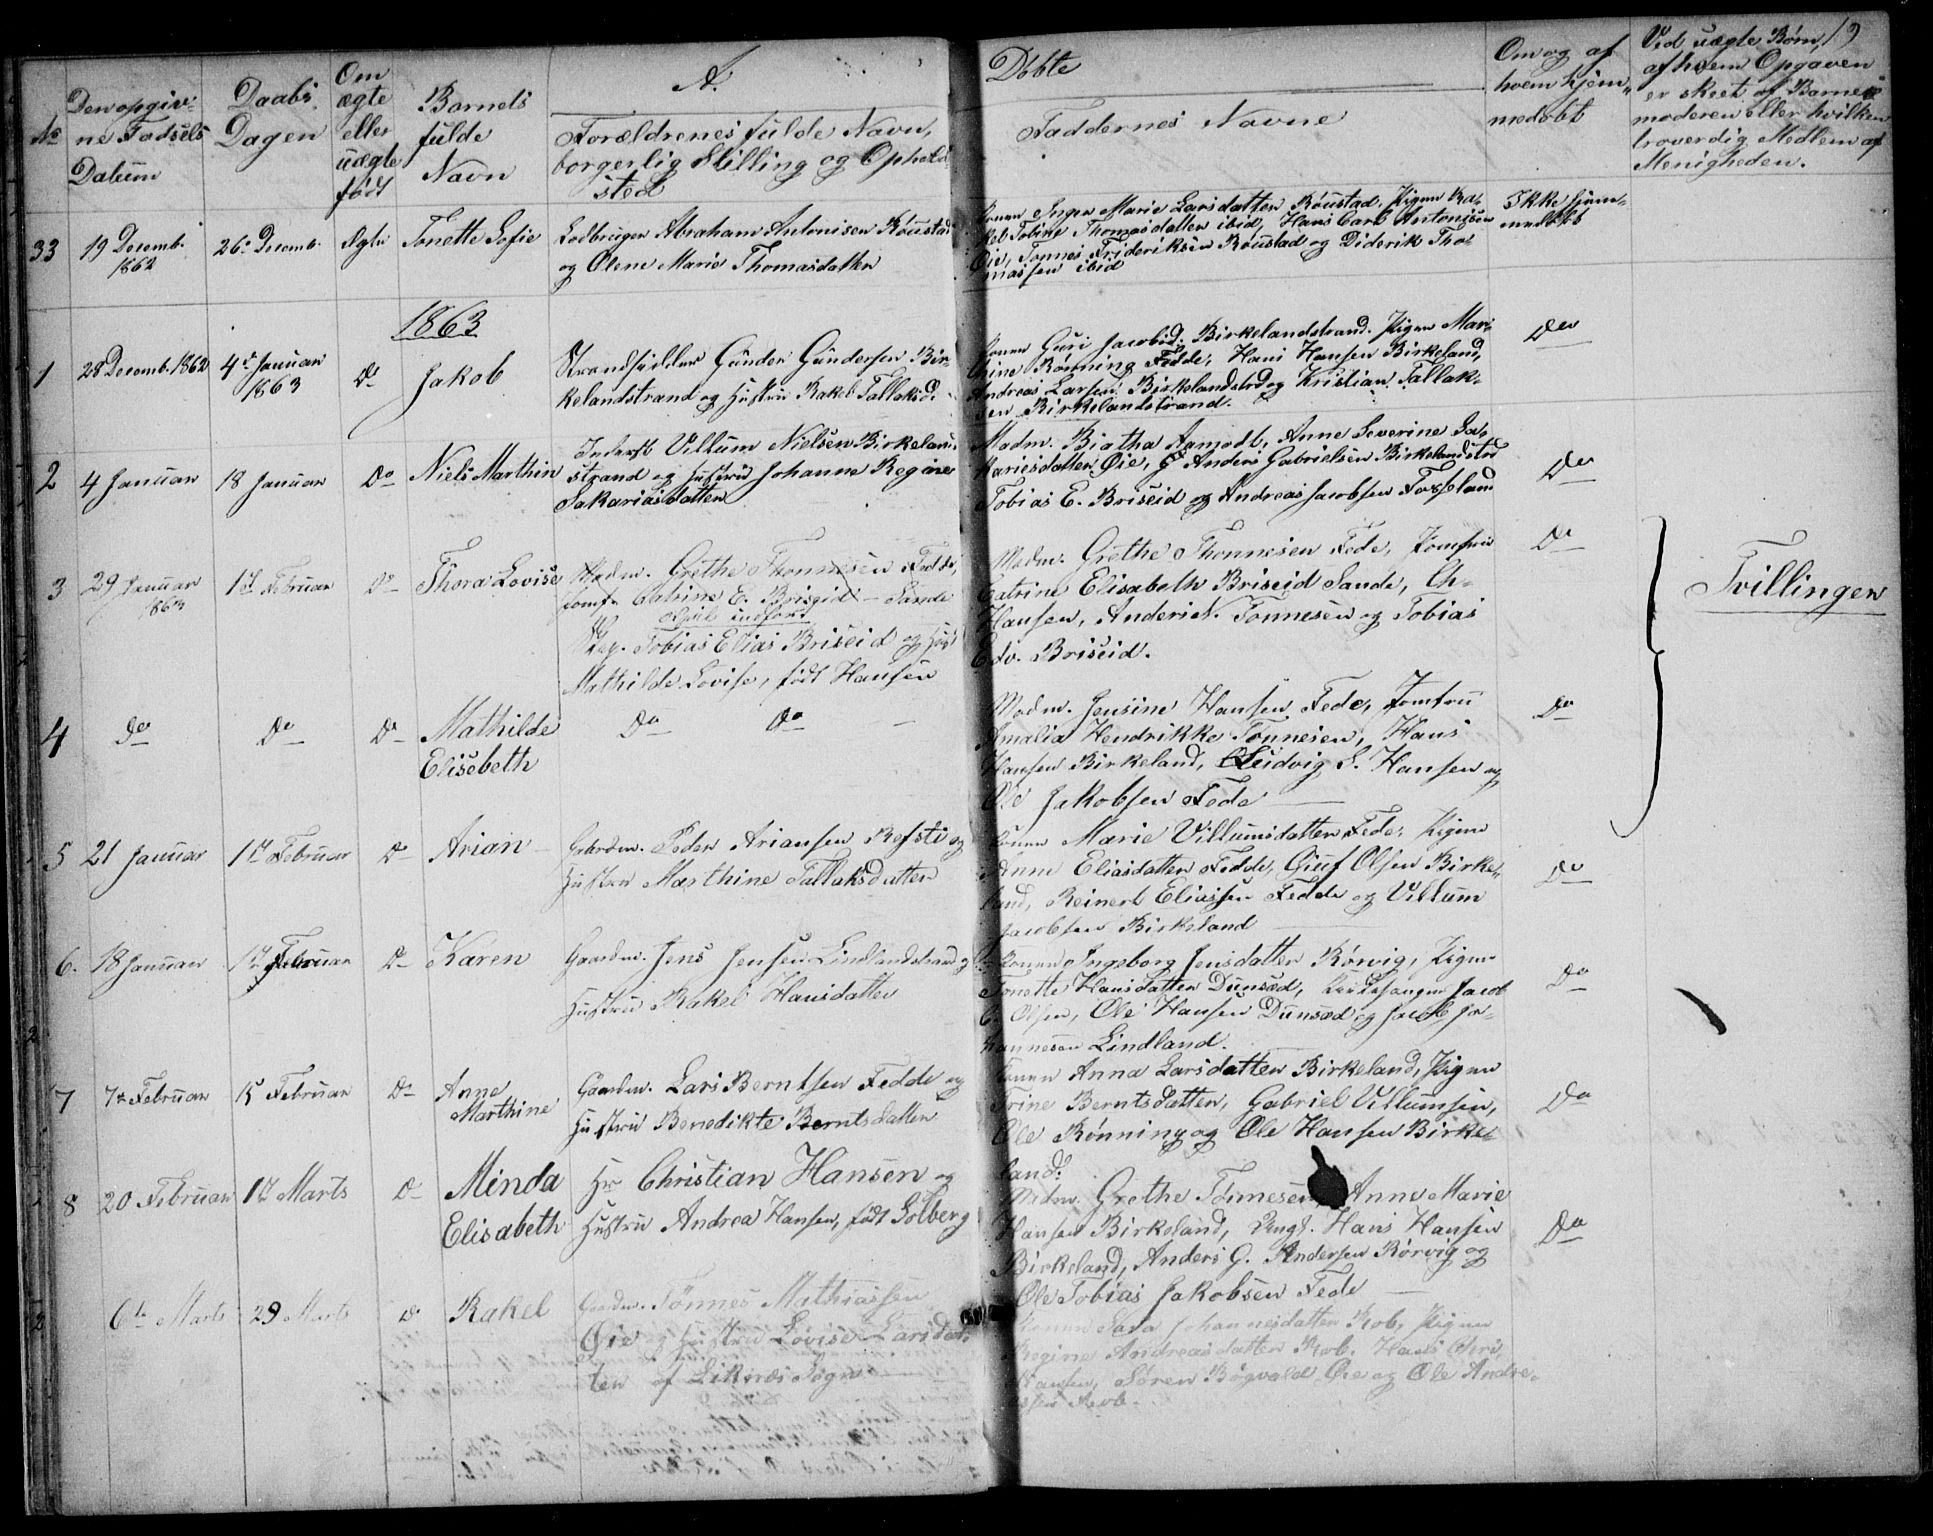 19
A.
Døbte
No
Den opgiv-
ne Fødsels
Datum
Daabs
Dagen
Om
ægte
eller
uægte
født
Barnets
fulde
Navn
Forældrenes fulde Navn,
borgerlig Stilling og Opholds
sted
Faddernes Navne
Om og af
hvem hjem-
medøbt
Ved uægte Børn,
af hvem Opgaven
er skeet af Barne
moderen eller hvilken
troverdig Medlem af
Menigheden.
33
19 Decemb.
1862
26de Decemb.
Ægte
Tonette Sofie
Lodbruger Abraham Antonisen Røustad
og Olene Marie Thomasdatter
Konen Inger Marie Larsdatter Røustad. Pigen Ra-
kel Tobine Thomasdatter ibid, Hans Carl Antonisen
Øie, Tønnes Frideriksen Røustad og Diderik Tho-
massen ibid
Ikke hjem-
medøbt
1863
1
28 Decemb. 1862
4de Januar
1863
Do
Jakob
Strandsidder Gunder Gundersen Bir-
kelandstrand og Hustru Rakel Tallaksd.
Konen Guri Jacobsd. Birkelandstrand. Pigen Mar-
thine Rønning Fedde, Hans Hansen Birkeland,
Andreas Larsen Birkelandstrd og Kristian Tallak-
sen Birkelandstrand.
Do
2
4 Januar
18 Januar
Do
Niels Marthin
Inderst Villum Nielsen Birkeland
strand og Hustru Johanne Regine
Sakariasdatter
Madm. Biatha Aamodt, Anne Severine Sa-
kariesdatter Øie, Anders Gabrielsen Birkelandstrd
Tobias E. Briseid og Andreas Jacobsen Fosseland
Do
3
29 Januar
1863
1st Februar
Do
Thora Lovise
Madm. Grethe Thonnesen Fedde,
Jomfr. Catrine E. Briseid – Sande
feil indført
Tobias Elias Briseid og Hust
Mathilde Lovise, født Hansen
Madm. Grethe Thonnesen Fede, Jomfru
Catrine Elisabeth Briseid Sande, Ch.
Hansen, Anders N. Tønnesen og Tobias
Edv. Briseid.
Do
Tvillinger
4
Do
Do
Do
Mathilde
Elisebeth
Do Do
Madm. Jensine Hansen Fede, Jomfru
Amalia Hendrikke Tønnesen, Hans
Hansen Birkeland, Ludvig S. Hansen og
Ole Jakobsen Fede
Do
5
21 Januar
1st Februar
Do
Arian
Gaardm. Peder Ariansen Refsti og
Hustru Marthine Tallaksdatter
Konen Marie Villumsdatter Fede, Pigen
Anne Eliasdatter Fedde, Giut Olsen Birke-
land, Reinert Eliassen Fedde og Villum
Jacobsen Birkeland
Do
6.
18 Januar
1st Februar
Do
Karen
Gaardm. Jens Jensen Lindlandstrand og
Hustru Rakel Hansdatter
Konen Ingeborg Jensdatter Rørvig, Pigen
Tonette Hansdatter Dunsæd, Kirkesanger Jacob
C. Olsen, Ole Hansen Dunsæd og Jacob Jo-
hannesen Lindland.
Do
7
7de Februar
15 Februar
Do
Anne
Marthine
Gaardm. Lars Berntsen Fedde og
Hustru Benedikte Berntsdatter
Konen Anna Larsdatter Birkeland, Pigen
Trine Berntsdatter, Gabriel Villumsen,
Ole Rønning og Ole Hansen Birke-
land.
Do
8
20 Februar
1st Marts
Do
Minda
Elisabeth
Hr Christian Hansen og
Hustru Andrea Hansen, født Solberg
Madm. Grethe Tønnesen, Anne Marie
Hansen Birkeland, Ungk. Hans Hansen
Birkeland, Anders G. Andersen Rørvig og
Ole Tobias Jakobsen Fede
Do
6te Marts
29 Marts
Do
Rakel
Gaardm. Tønnes Mathiassen
Øie og Hustru Lovise Larsdat-
ter af Liknes Sogn
Konen Sara Johannesdatter Rob, Pigen
Regine Andreasdatter Rob. Hans Chri
Hansen, Søren Røgvald Øie og Ole Andre-
assen Rob.